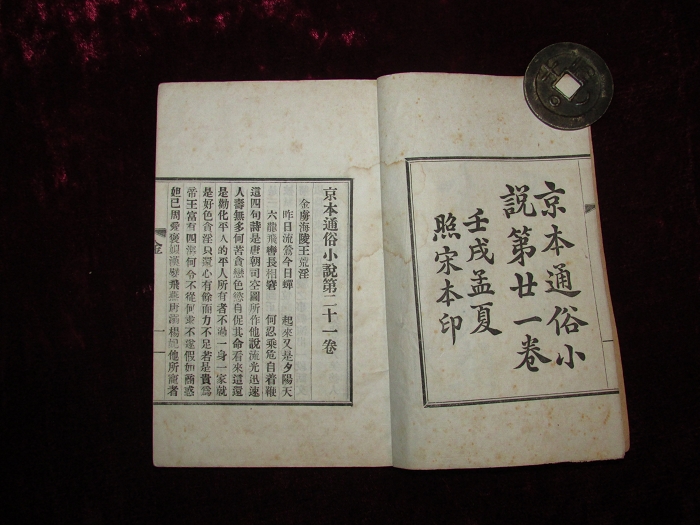 京本通俗小
說第廿一卷
壬戌孟夏
照宋本印
京本通俗小說第二十一卷
金虜海陵王荒淫
昨日流鶯今日蟬　起來又是夕陽天
六龍飛轡長相窘　何忍乘危自着鞭
這四句詩是唐朝司空圖所作他說流光迅速
人壽無多何苦貪戀色慾自促其命看來這還
是勸化平人的平人所有者不過一身一家就
是好色貪淫只還心有餘而力不足若是貴爲
帝王富有四海何令不從何求不遂假如商惑
妲己周愛褒姒漢嬖飛燕唐溺楊妃他所寵者
金
一